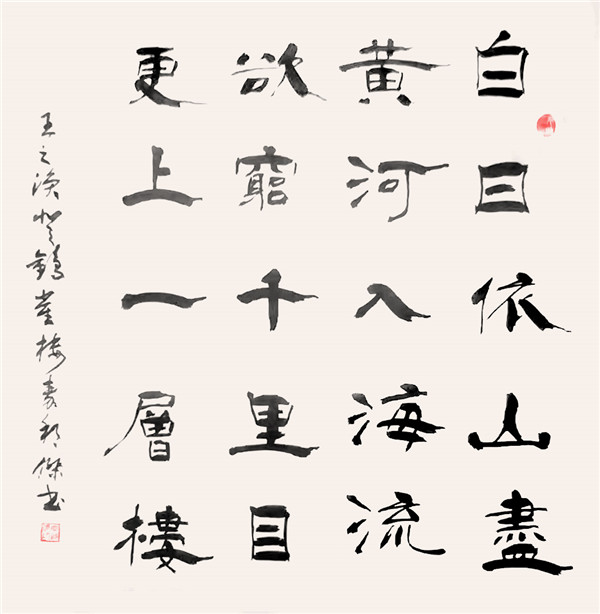 白日依山盡
黃河入海流
欲窮千里目
更上一層樓
王之渙登鸛雀樓
傑书